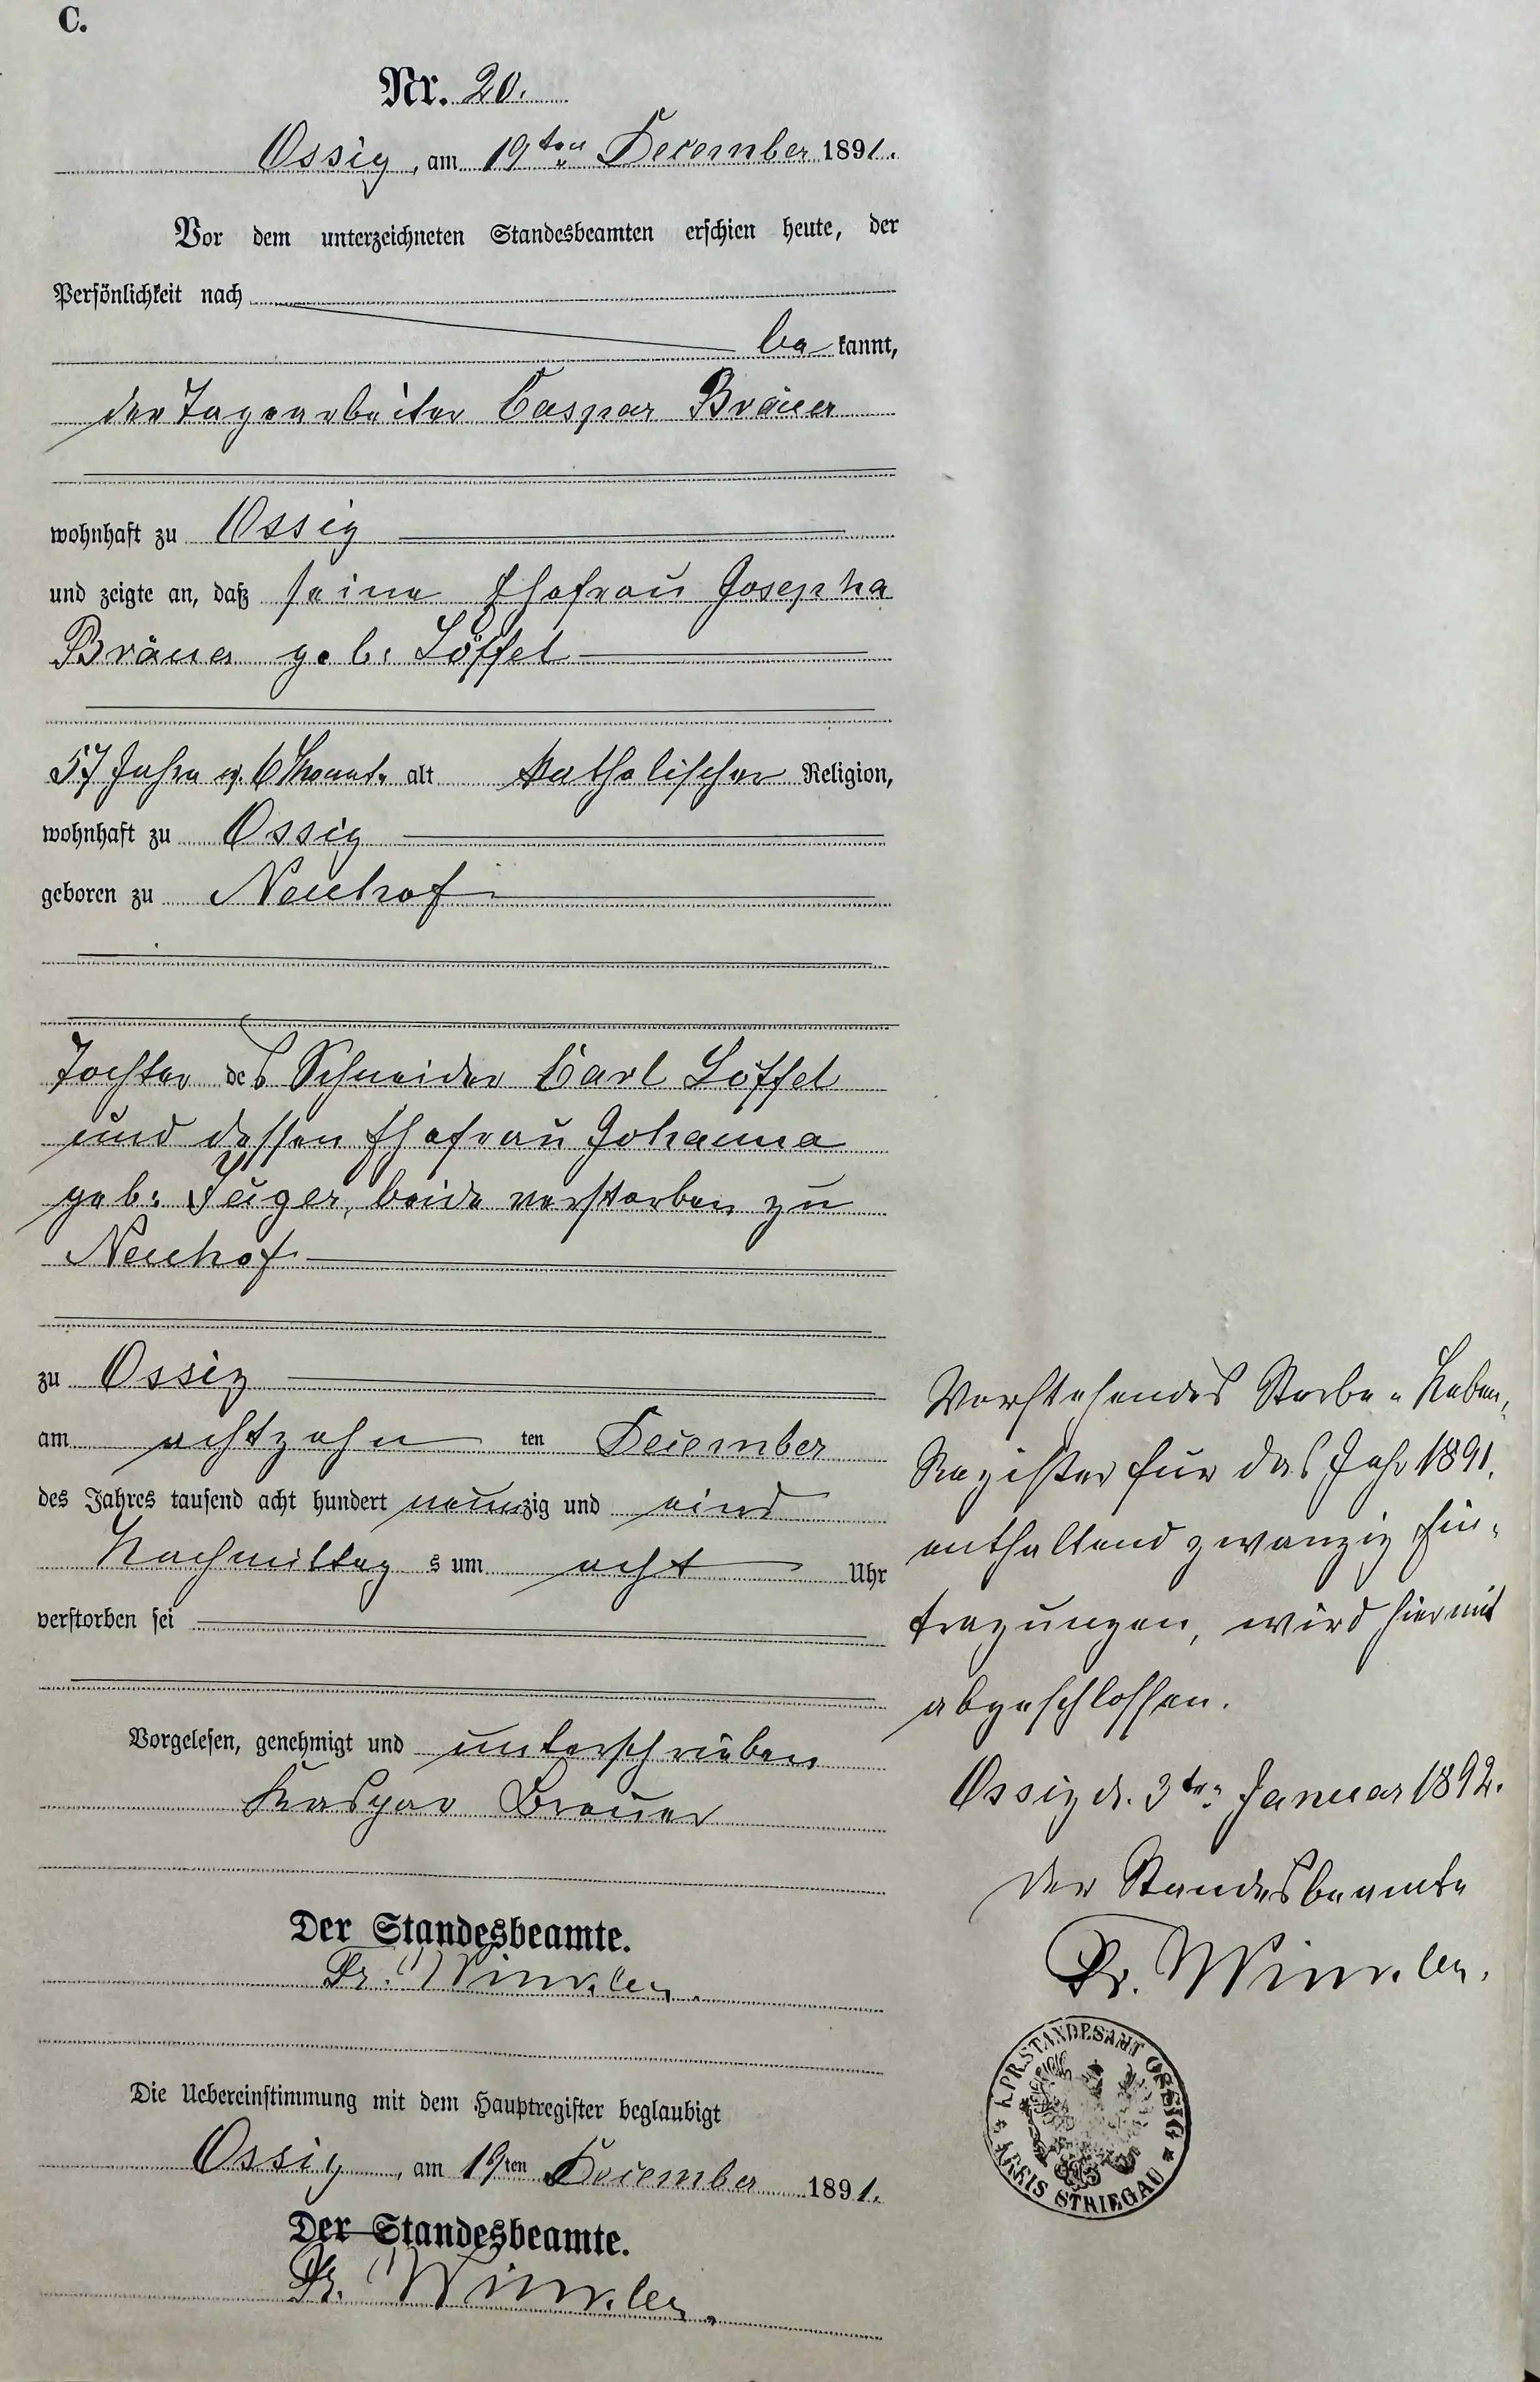 C.
Nr. 20.
Ossig, am 19ten December 1891.
Vor dem unterzeichneten Standesbeamten erschien heute, der
Persönlichkeit nach
be kannt,
der Tagearbeiter Caspar Bräuer
wohnhaft zu Ossig
und zeigte an, daß seine Ehefrau Josepha
Bräuer geb. Löffel
57 Jahre u. 6 Monat. alt katholischer Religion,
wohnhaft zu Ossig
geboren zu Neuhof
Tochter des Schneider Carl Löffel
und dessen Ehefrau Johanna
geb. Jäger, beide verstorben zu
Neuhof
zu Ossig
am achtzehn ten December
des Jahres tausend acht hundert neunzig und eins
Nachmittag s um acht Uhr
verstorben sei
Vorgelesen, genehmigt und unterschrieben
Kaspar Breuer
Der Standesbeamte.
Dr. Winkler.
Die Uebereinstimmung mit dem Hauptregister beglaubigt
Ossig, am 19ten December 1891.
Der Standesbeamte.
Dr. Winkler.
Vorstehendes Sterbe-Neben-
Register für das Jahr 1891,
enthaltend zwanzig Ein-
tragungen, wird hiermit
abgeschlossen.
Ossig d. 3ten Januar 1892.
Der Standesbeamte
Dr. Winkler.
K. PR. STANDESAMT OSSIG
* KREIS STRIEGAU *